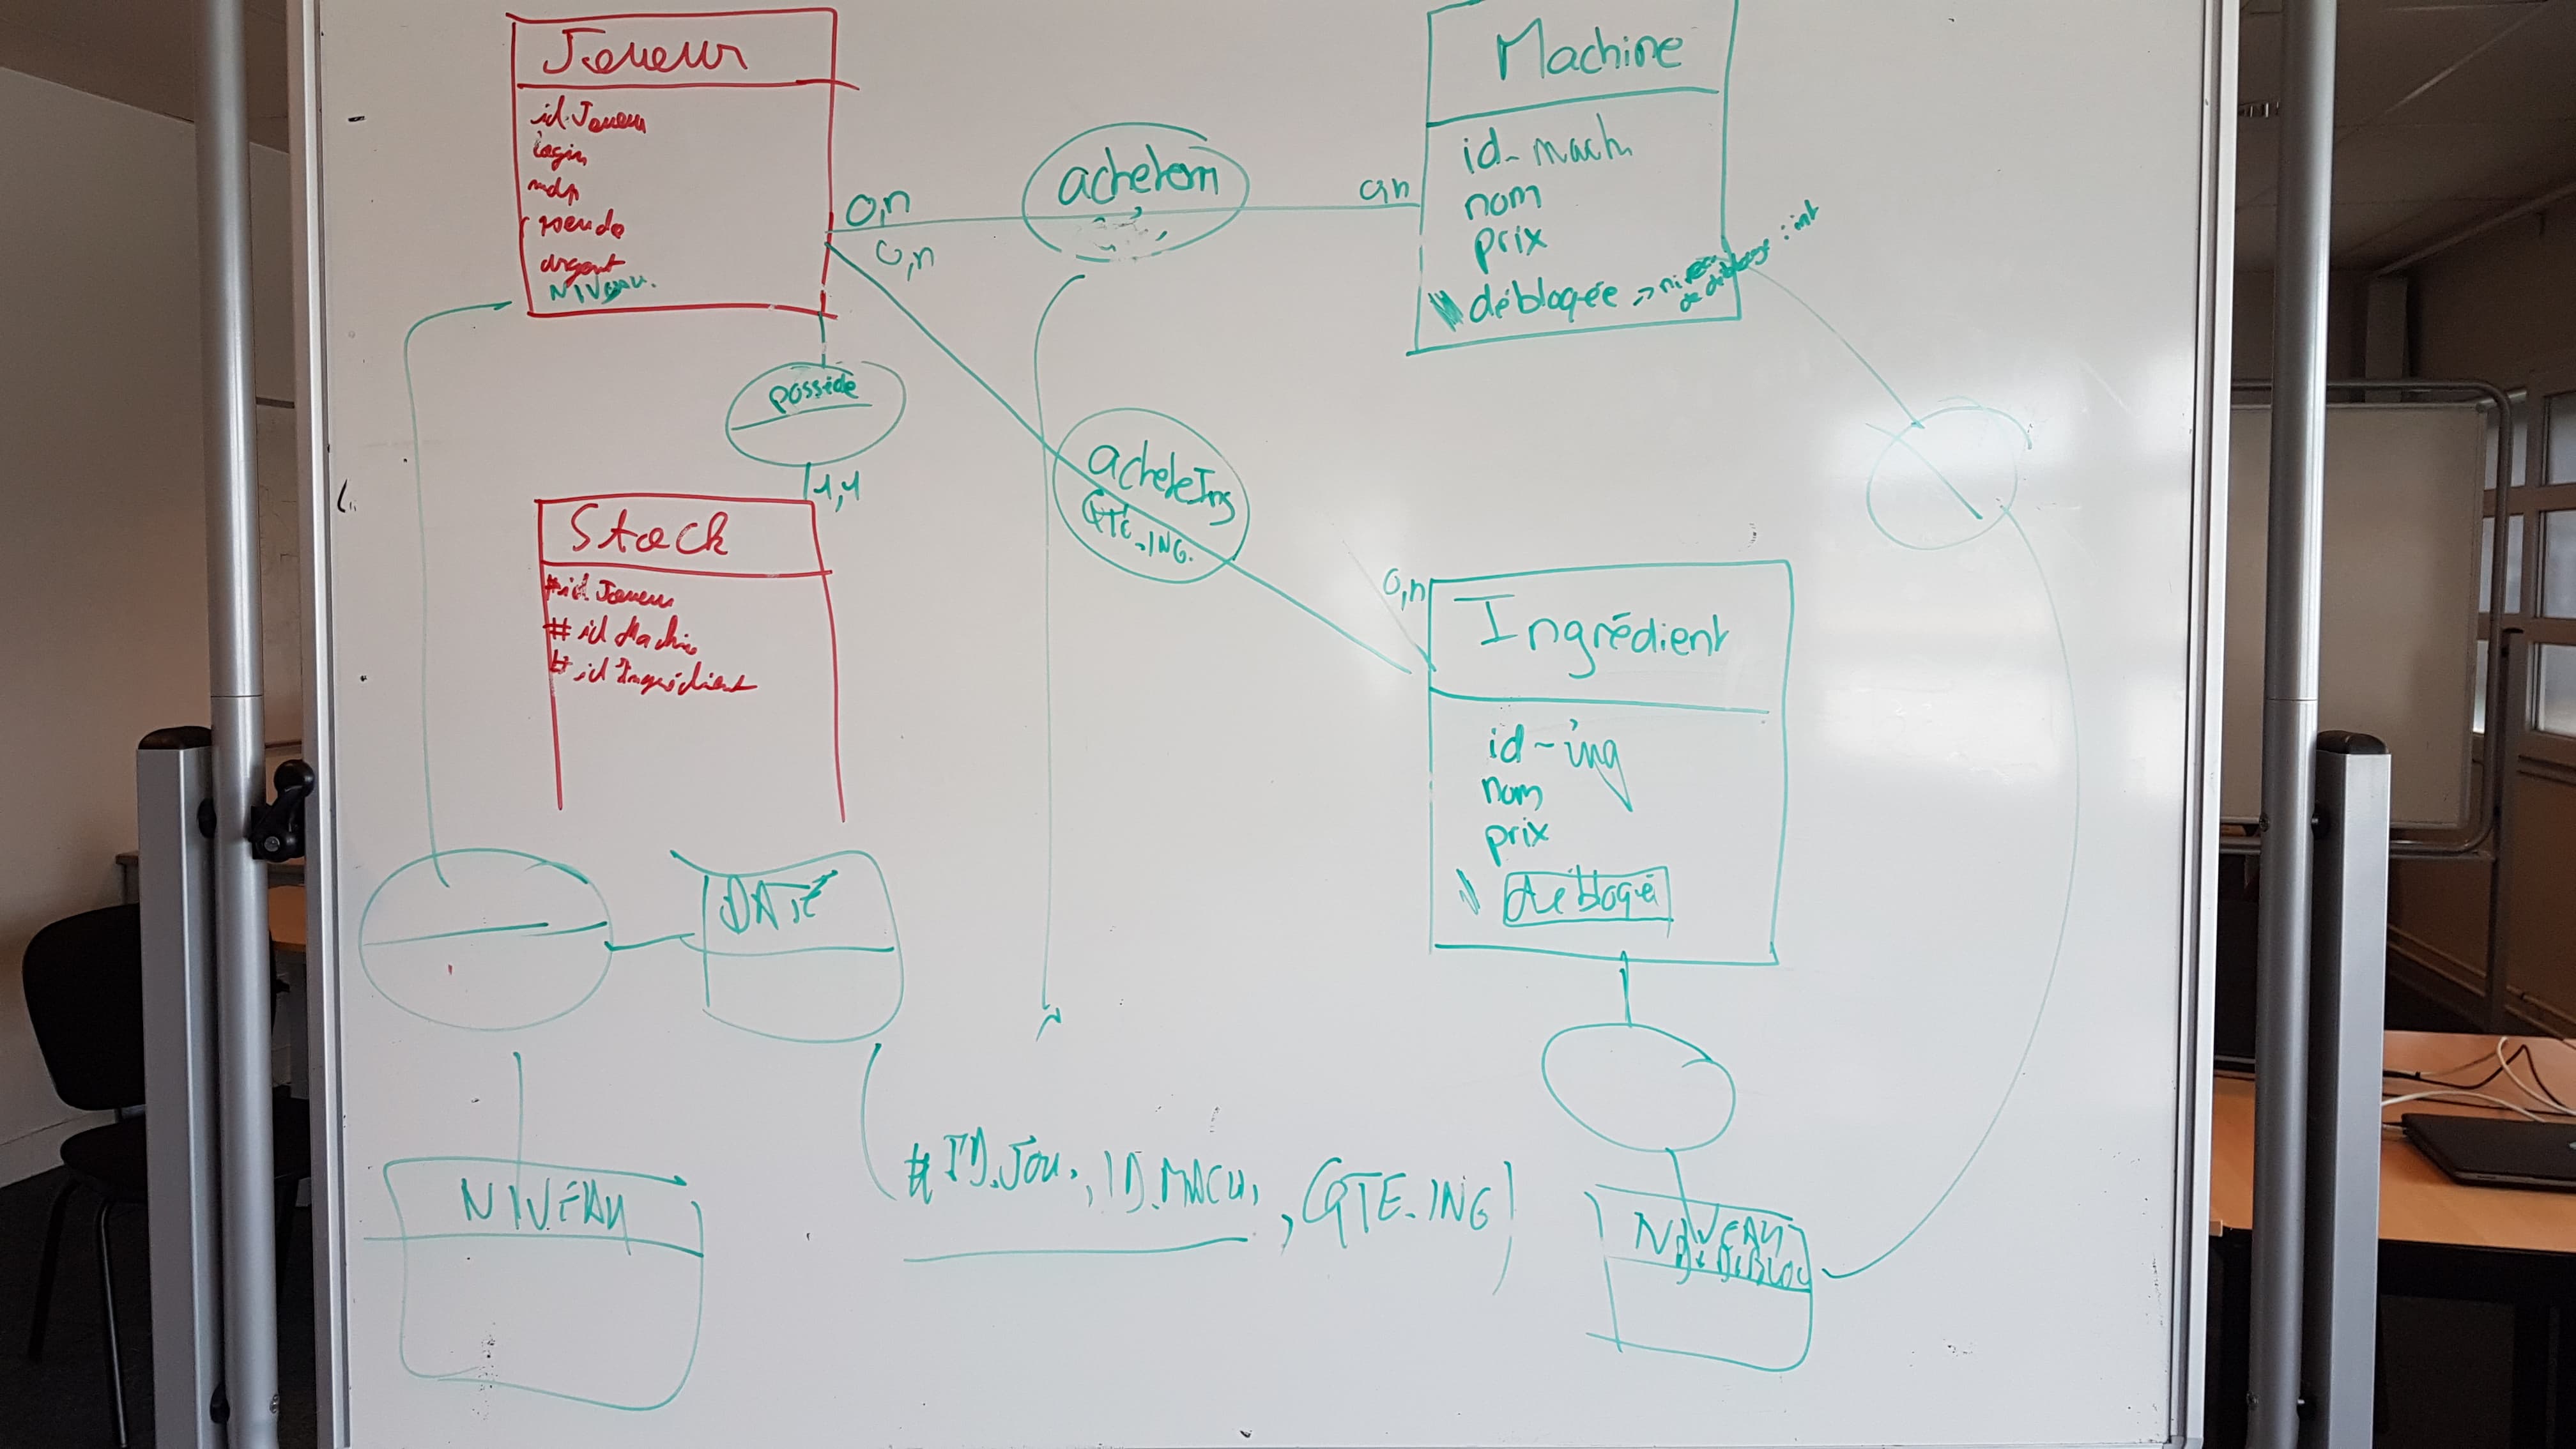 Joueur
id Joueur
login
mdp
pseudo
argent
NIVeau.
0,n
0,n
achetem
0,n
Machine
id_mach
nom
prix
débloquée → niveau de déblocage : int
possède
1,1
Stock
#id Joueur
# id Machine
# id Ingrédient
acheteIng
QTE_ING.
0,n
Ingrédient
id-ing
nom
prix
débloqué
DATE
NIVEAU
# ID.Jou., ID.MACH, , QTE-ING)
NIVEAU
De DéBLOC